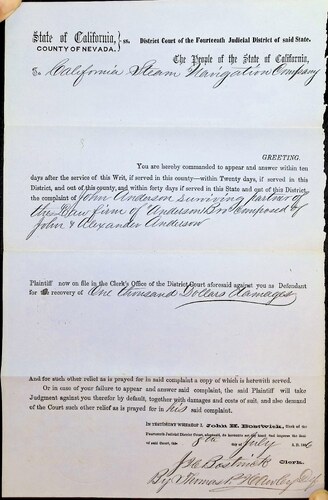 State of California, } ss. District Court of the Fourteenth Judicial District of said State.
COUNTY OF NEVADA.
The People of the State of California,
To California Steam Navigation Company
GREETING.
You are hereby commanded to appear and answer within ten
days after the service of this Writ, if served in this county—within Twenty days, if served in this
District, and out of this county, and within forty days if served in this State and out of this District,
the complaint of John Anderson surviving partner of
the Law firm of Anderson Bro composed of
John & Alexander Anderson
Plaintiff now on file in the Clerk's Office of the District Court aforesaid against you as Defendant
for the recovery of One thousand Dollars damages
And for such other relief as is prayed for in said complaint a copy of which is herewith served.
Or in case of your failure to appear and answer said complaint, the said Plaintiff will take
Judgment against you therefor by default, together with damages and costs of suit, and also demand
of the Court such other relief as is prayed for in his said complaint.
IN TESTIMONY WHEREOF I John H. Bostwick, Clerk of the
Fourteenth Judicial District Court aforesaid, do hereunto set my hand and impress the seal
of said Court, this 8th day of July A. D. 186
J H Bostwick Clerk.
By Thomas P Hawley Dep